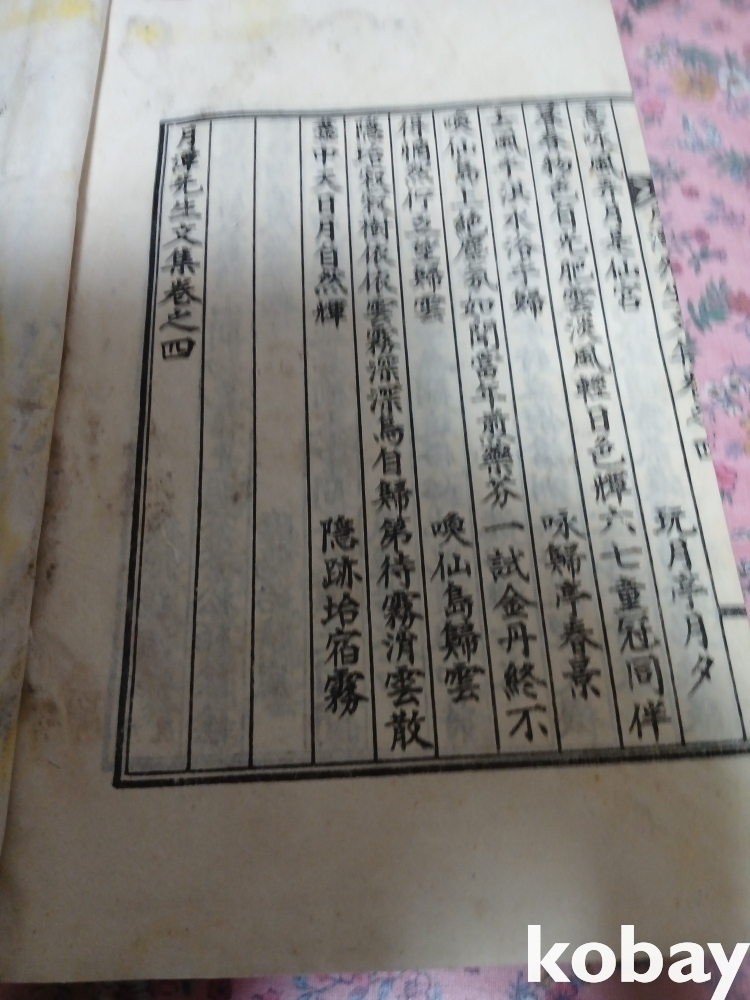 月潭先生文集卷之四
意咏風弄月是仙宮 玩月亭月夕
暮春物色自光肥雲淡風輕日色輝六七童冠同伴
上風乎淇水浴乎歸 咏歸亭春景
喚仙島上絶塵氛如聞當年煎藥芬一試金丹終不
得惆然行立望歸雲 喚仙島歸雲
隱坮寂寂樹依依雲霧深深鳥自歸第待霧消雲散
盡中天日月自然輝 隱跡坮宿霧
月潭先生文集卷之四
kobay